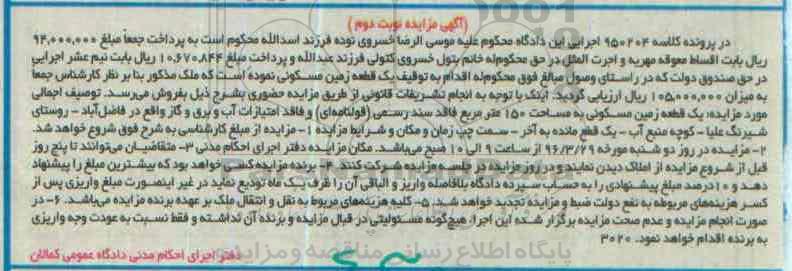 (آگهی مزایده نوبت دوم)
در پرونده کلاسه ۹۵۰۲۰۴ اجرایی این دادگاه محکوم علیه موسی الرضا خسروی نوده فرزند اسدالله محکوم است به پرداخت جمعاً مبلغ ۹۴,۰۰۰,۰۰۰
ریال بابت اقساط معوقه مهریه و اجرت المثل در حق محکوم‌له خانم بتول خسروی کتولی فرزند عبدالله و پرداخت مبلغ ۱۰,۶۷۰,۸۴۴ ریال بابت نیم عشر اجرایی
در حق صندوق دولت که در راستای وصول مبالغ فوق محکوم‌له اقدام به توقیف یک قطعه زمین مسکونی نموده است که ملک مذکور بنا بر نظر کارشناس جمعاً
به میزان ۱۰۵,۰۰۰,۰۰۰ ریال ارزیابی گردید. اینک با توجه به انجام تشریفات قانونی از طریق مزایده حضوری بشرح ذیل بفروش می‌رسد. توصیف اجمالی
مورد مزایده: یک قطعه زمین مسکونی به مساحت ۱۵۰ متر مربع فاقد سند رسمی (قولنامه‌ای) و فاقد امتیازات آب و برق و گاز واقع در فاضل‌آباد - روستای
شیرنگ علیا - کوچه منبع آب - یک قطع مانده به آخر - سمت چپ زمان و مکان و شرایط مزایده ۱- مزایده از مبلغ کارشناسی به شرح فوق شروع خواهد شد.
۲- مزایده در روز دو شنبه مورخه ۹۶/۳/۲۹ از ساعت ۹ الی ۱۰ صبح می‌باشد. مکان مزایده دفتر اجرای احکام مدنی ۳- متقاضیان می‌توانند تا پنج روز
قبل از شروع مزایده از املاک دیدن نمایند و در روز مزایده در جلسه مزایده شرکت کنند. ۴- برنده مزایده کسی خواهد بود که بیشترین مبلغ را پیشنهاد
دهد و ۱۰ درصد مبلغ پیشنهادی را به حساب سپرده دادگاه بلافاصله واریز و الباقی آن را ظرف یک ماه تودیع نماید در غیر اینصورت مبلغ واریزی پس از
کسر هزینه‌های مربوطه به نفع دولت ضبط و مزایده تجدید خواهد شد. ۵- کلیه هزینه‌های مربوط به نقل و انتقال ملک بر عهده برنده مزایده می‌باشد. ۶- در
صورت انجام مزایده و عدم صحت مزایده برگزار شده این اجرا، هیچگونه مسئولیتی در قبال مزایده و برنده آن نداشته و فقط نسبت به عودت وجه واریزی
به برنده اقدام خواهد نمود. ۳۰۲۰
دفتر اجرای احکام مدنی دادگاه عمومی کمالان
پایگاه اطلاع رسانی مناقصه و مزایده